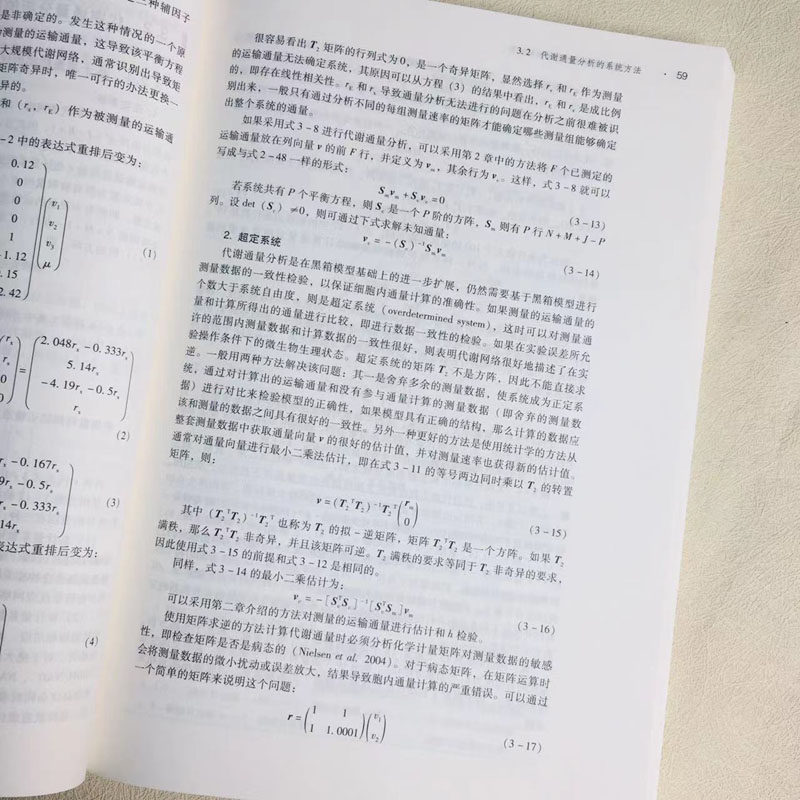 二种辅因子
是非确定的。发生这种情况的一个原
测量的运输通量，这导致该平衡方程
大规模代谢网络，通常识别出导致矩
矩阵奇异时，唯一可行的办法更换一
异的。
和（rs，rE）作为被测量的运输通
-2 中的表达式重排后变为：
0.12
0
0
0
1
-1.12
.15
2.42
v1
v2
v3
μ
(1)
rs
rs
0
0
=
2.048rs-0.333rs
5.14rs
-4.19rs-0.5rs
rs
(2)
s-0.167rs
9rs-0.5rs
rs-0.333rs
14rs
(3)
表达式重排后变为：
(4)
3.2 代谢通量分析的系统方法 · 59
很容易看出 T2 矩阵的行列式为0，是一个奇异矩阵，显然选择 rs 和 rE 作为测量
的运输通量无法确定系统，其原因可以从方程（3）的结果中看出，rE 和 rs 是成比例
的，即存在线性相关性。rE 和 rs 导致通量分析无法进行的问题在分析之前很难被识
别出来，一般只有通过分析不同的每组测量速率的矩阵才能确定哪些测量组能够确定
出整个系统的通量。
如果采用式3-8进行代谢通量分析，可以采用第2章中的方法将 F 个已测定的
运输通量放在列向量 v 的前 F 行，并定义为 vm，其余行为 vc。这样，式3-8就可以
写成与式2-48一样的形式：
Smvm+Scvc=0 (3-13)
若系统共有 P 个平衡方程，则 Sc 是一个 P 阶的方阵，Sm 则有 P 行 N+M+J-P
列。设 det（Sc）≠0，则可通过下式求解未知通量：
vc=-(Sc)-1Smvm (3-14)
2. 超定系统
代谢通量分析是在黑箱模型基础上的进一步扩展，仍然需要基于黑箱模型进行
测量数据的一致性检验，以保证细胞内通量计算的准确性。如果测量的运输通量的
个数大于系统自由度，则是超定系统（overdetermined system），这时可以对测量通
量和计算所得出的通量进行比较，即进行数据一致性的检验。如果在实验误差所允
许的范围内测量数据和计算数据的一致性很好，则表明代谢网络很好地描述了在实
验操作条件下的微生物生理状态。超定系统的矩阵 T2 不是方阵，因此不能直接求
逆。一般用两种方法解决该问题：其一是舍弃多余的测量数据，使系统成为正定系
统，通过对计算出的运输通量和没有参与通量计算的测量数据（即舍弃的测量数
据）进行对比来检验模型的正确性，如果模型具有正确的结构，那么计算的数据应
该和测量的数据之间具有很好的一致性。另外一种更好的方法是使用统计学的方法从
整套测量数据中获取通量向量 v 的很好的估计值，并对测量速率也获得新的估计值。
通常对通量向量进行最小二乘法估计，即在式3-11的等号两边同时乘以 T2 的转置
矩阵，则：
v=(T2TT2)-1T2T(rm 0) (3-15)
其中 (T2TT2)-1T2T 也称为 T2 的拟-逆矩阵，矩阵 T2TT2 是一个方阵。如果 T2
满秩，那么 T2TT2 非奇异，并且该矩阵可逆。T2 满秩的要求等同于 T2 非奇异的要求，
因此使用式3-15的前提和式3-12是相同的。
同样，式3-14的最小二乘估计为：
vc=-[ScTSc]-1[ScTSm]vm (3-16)
可以采用第二章介绍的方法对测量的运输通量进行估计和 h 检验。
使用矩阵求逆的方法计算代谢通量时必须分析化学计量矩阵对测量数据的敏感
性，即检查矩阵是否是病态的（Nielsen et al. 2004）。对于病态矩阵，在矩阵运算时
会将测量数据的微小扰动或误差放大，结果导致胞内通量计算的严重错误。可以通过
一个简单的矩阵来说明这个问题：
r=(1 1 1 1.0001)(v1 v2) (3-17)